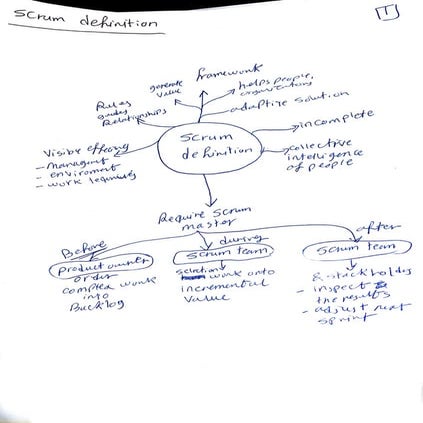 Scrum definition
1
framework
generate
value
helps people,
organizations
Rules
guides
Relationships
adaptive solution
incomplete
Scrum
definition
Visible
- management
- enviroment
- work
collective
intelligence
of people
Require Scrum
master
Before
during
after
product owner
Scrum team
Scrum team
order
complex work
into
Backlog
selection
work onto
incremental
value
& stackholdes
- inspect
the results
- adjust next
sprint